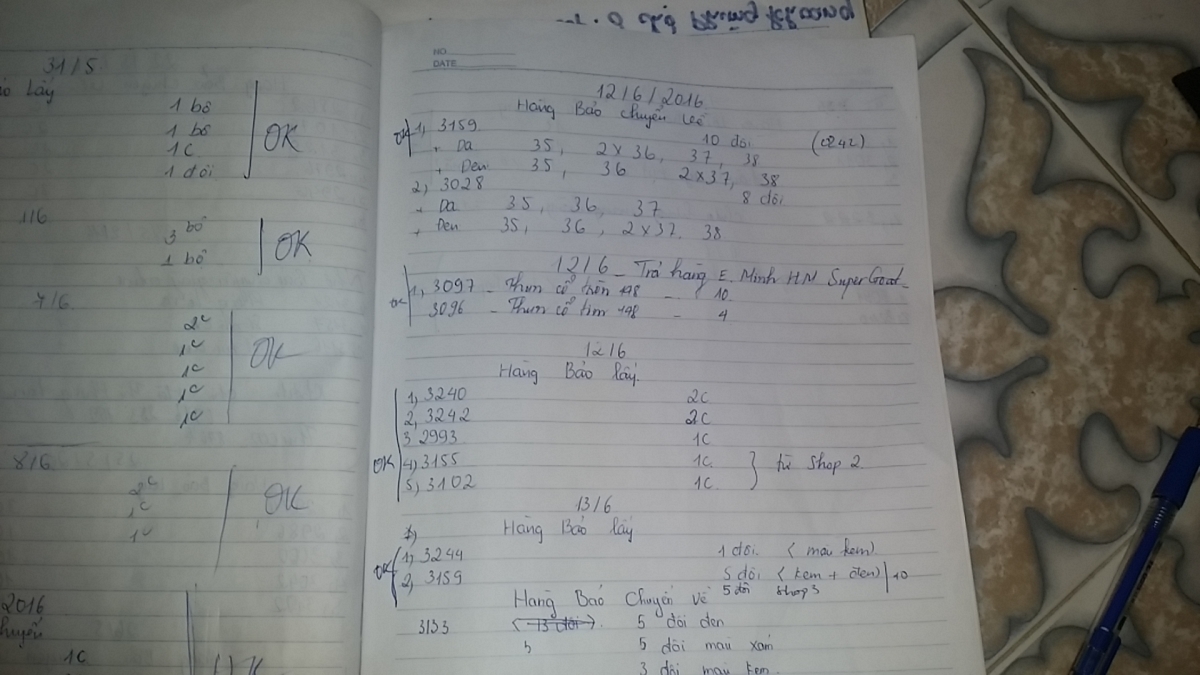 31/5
lấy
1 bộ
1 bộ
1C
1 đôi
OK
1/6
3 bộ
1 bộ
OK
7/6
2C
1C
1C
1C
1C
OK
8/6
2C
1C
1C
OK
2016
chuyển
1C
OK
NO
DATE
12/6/2016
Hàng Bảo chuyển về
OK 1, 3159 10 đôi
+ Da 35, 2x36, 37, 38
+ Đen 35, 36 2x37, 38
2, 3028 8 đôi
+ Da 35, 36, 37
+ Đen 35, 36, 2x37. 38
12/6 - Trả hàng E. Minh HM
OK 1, 3097 - Thun cổ tròn 198 - 10
3096 - Thun cổ tim 198 - 4
12/6
Hàng Bảo lấy
1, 3240 2C
2, 3242 2C
3 2993 1C
OK 4, 3155 1C. } từ Shop 2
5, 3102 1C
13/6
Hàng Bảo lấy
OK 1, 3244 1 đôi. (màu kem)
2, 3159 5 đôi (kem + đen) 10
5 đôi shop 3
Hàng Bảo Chuyển về
3133 (13 đôi). 5 đôi đen
5 5 đôi màu xám
3 đôi màu kem